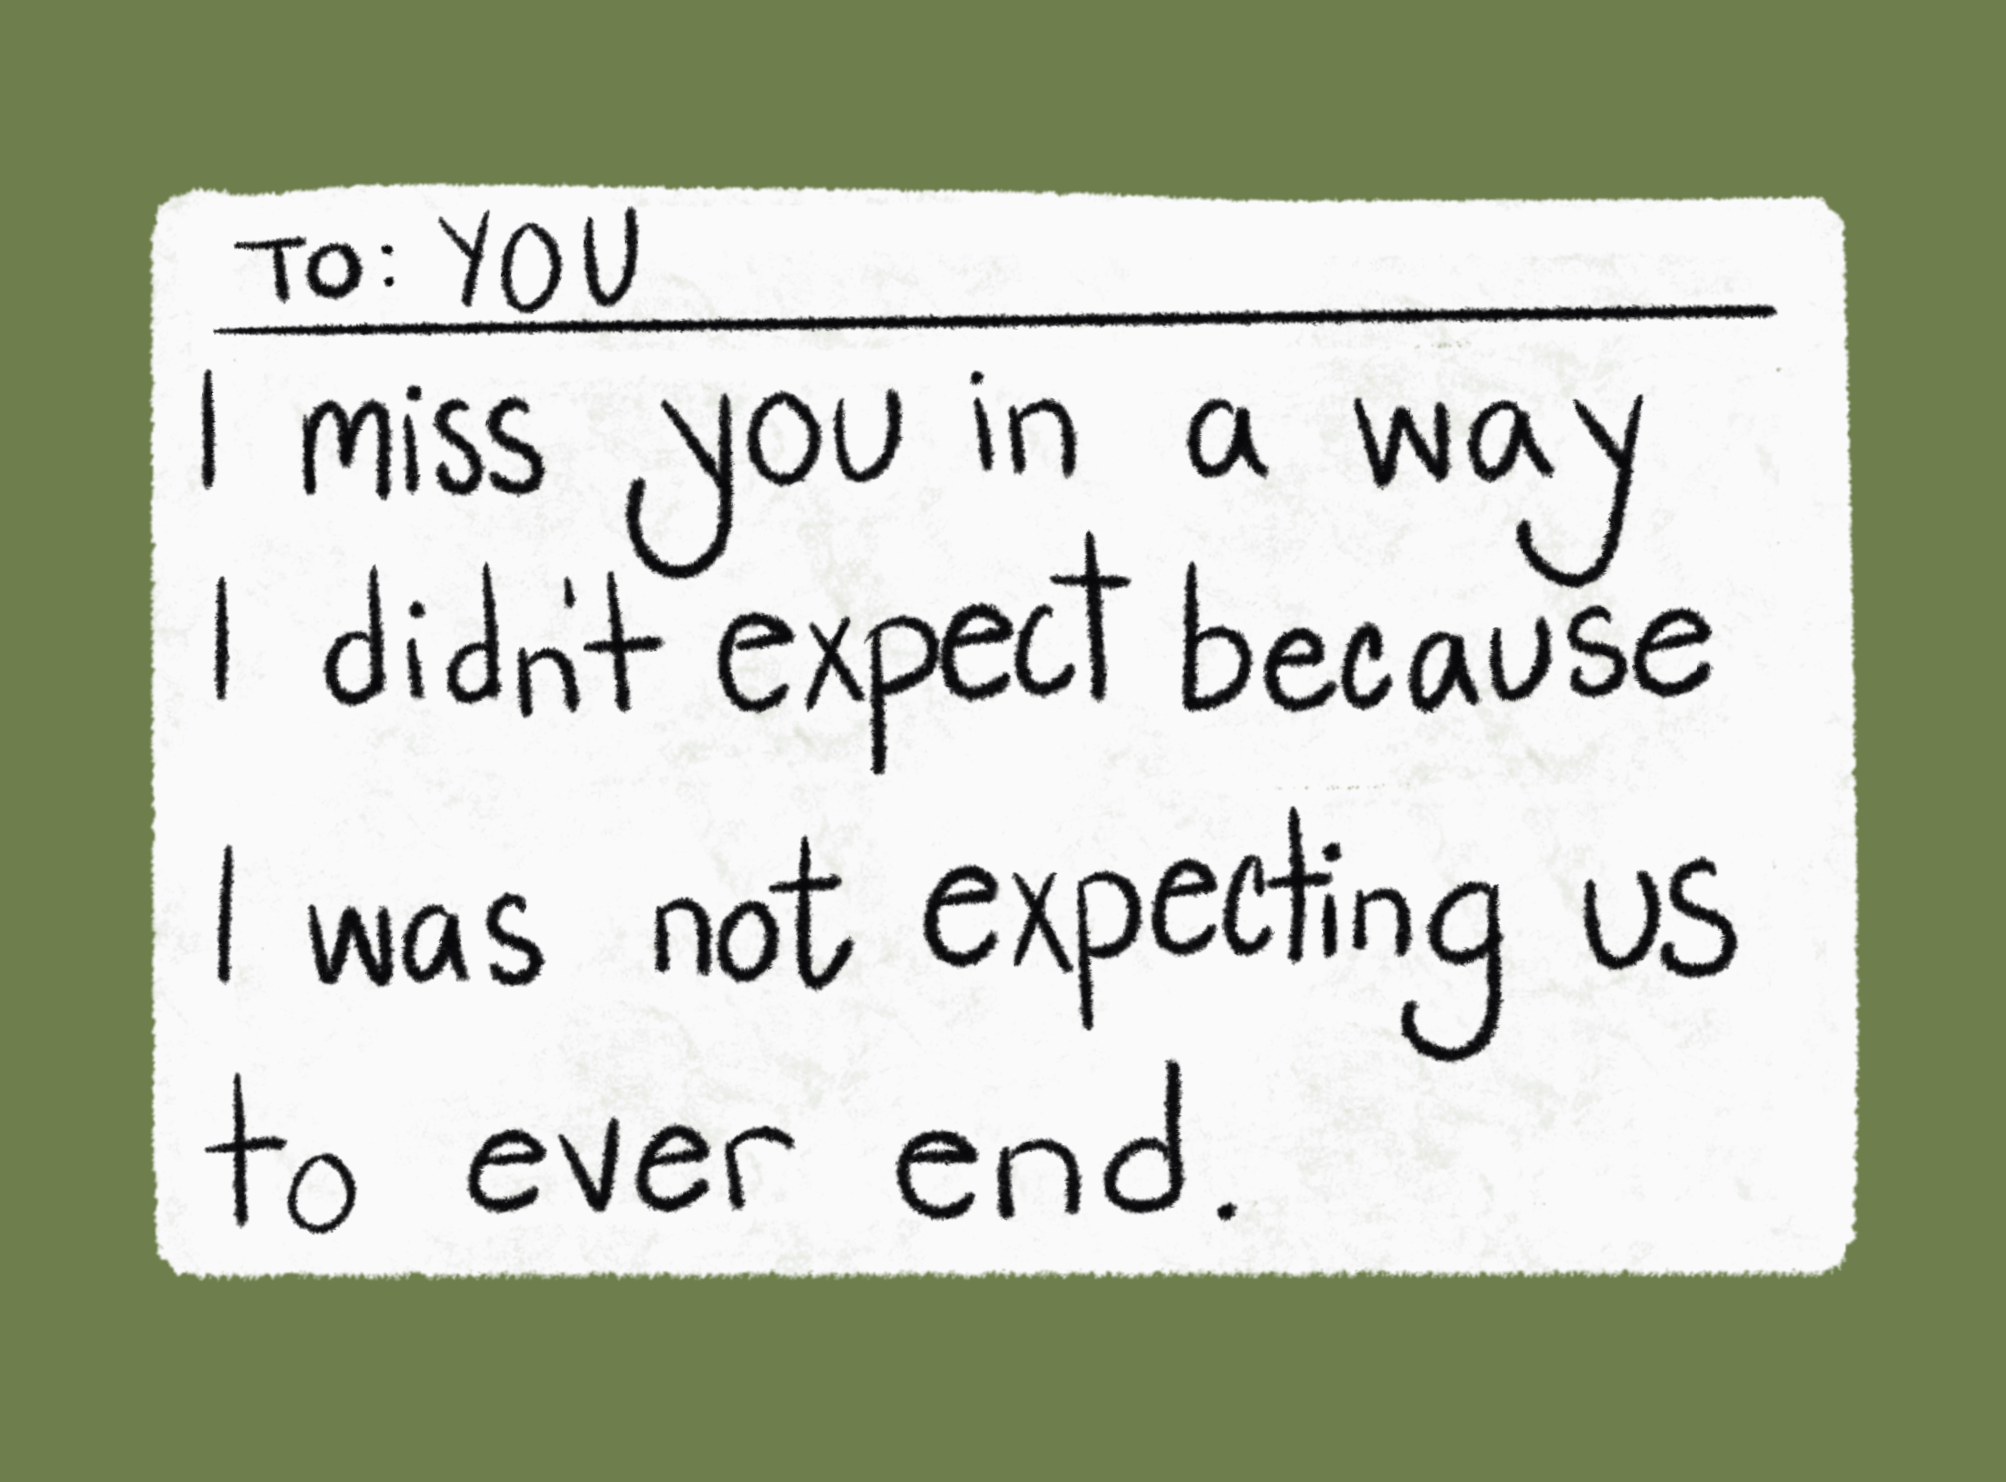 TO: YOU
I miss you in a way
I didn't expect because
I was not expecting us
to ever end.